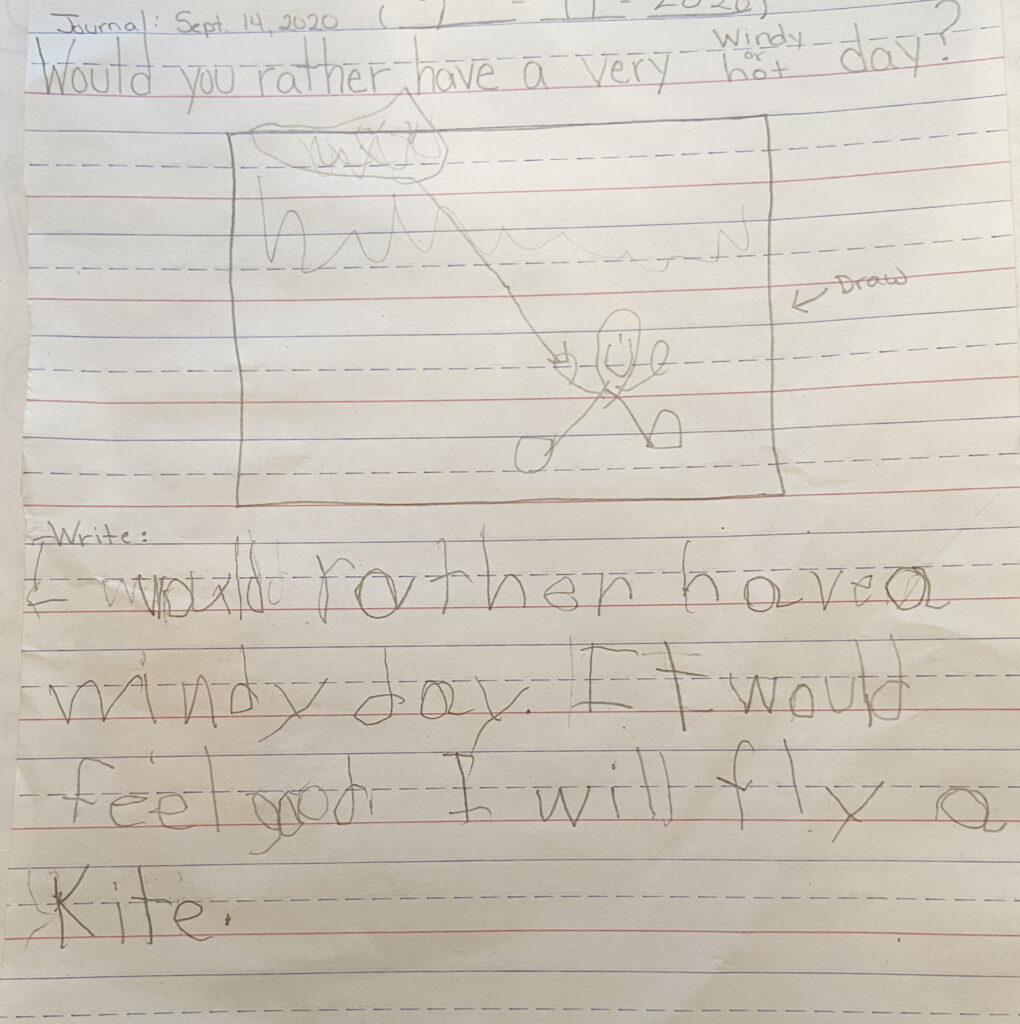 Journal: Sept. 14, 2020 ( - - 2020)
Would you rather have a very windy or hot day?
Draw
Write:
I would rather have a
windy day. It would
feel good I will fly a
Kite.